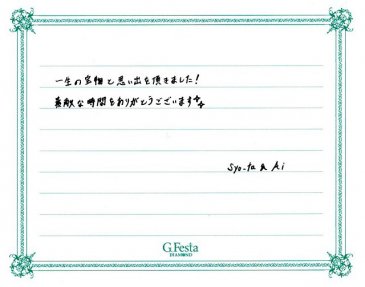 一生の宝物と思い出を頂きました!
素敵な時間をありがとうございます
Syo-ta & Ai
G.Festa
DIAMOND